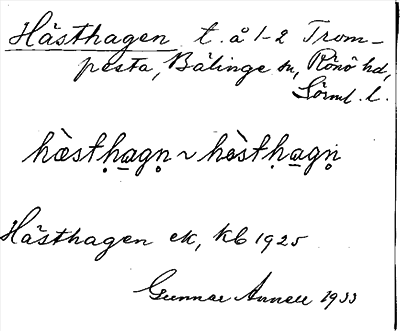 Hästhagen t. å 1-2 Trom-
pesta, Bälinge sn, Rönö hd,
Sörml. l.
hæ̀stḥa̲gṇ ~ hɛ̀stḥa̲gṇ
Hästhagen ek, kb 1925
Gunnar Annell 1933